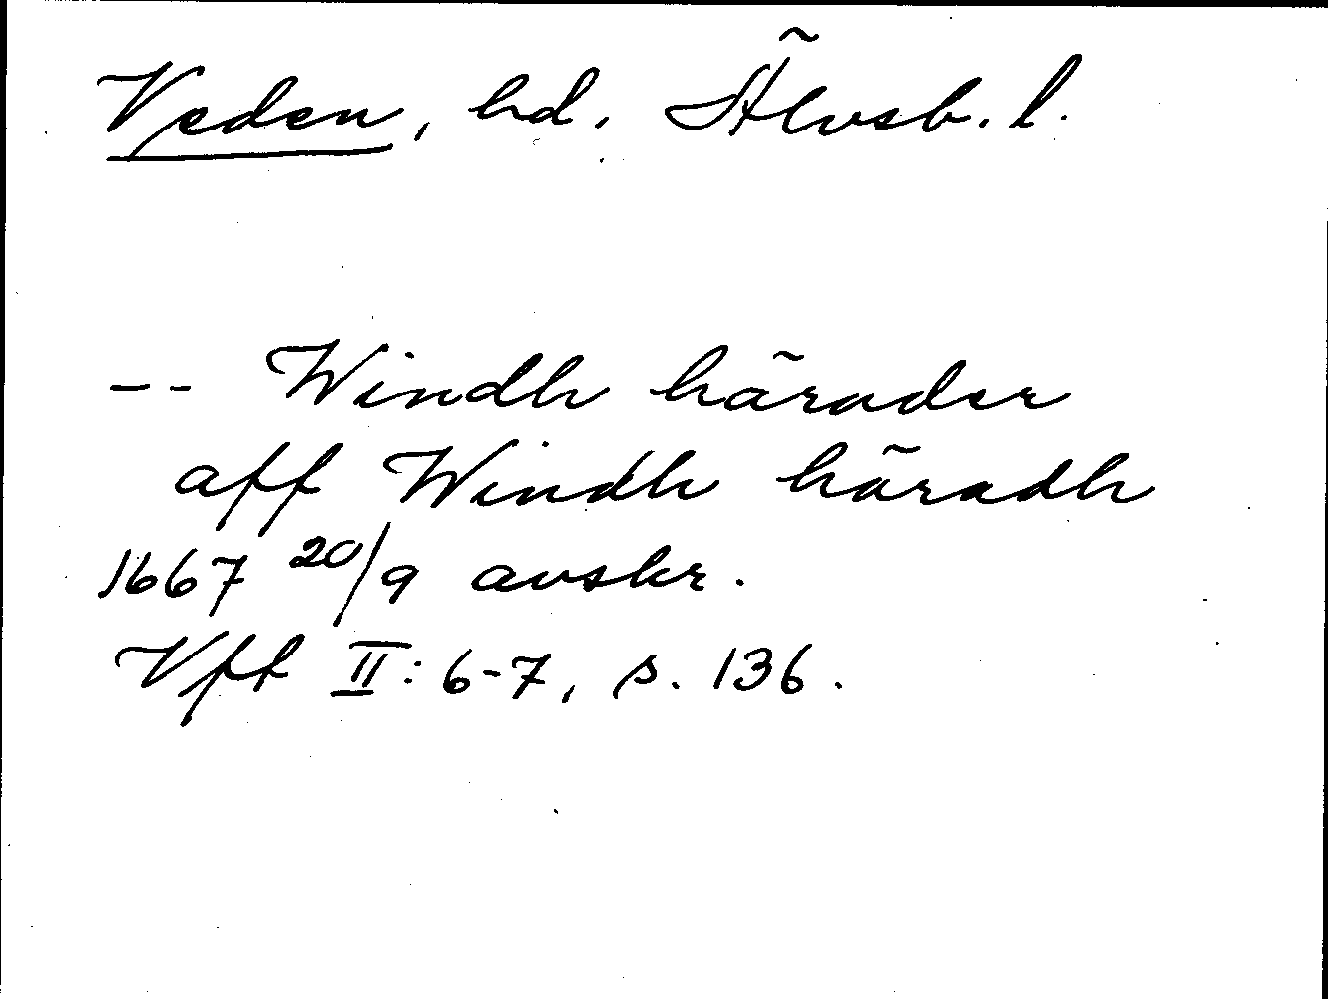 Veden, hd. Älvsb. l.
-- Windh härader
aff Windh häradh
1667 20/9 avskr.
Vff II: 6-7, s. 136.